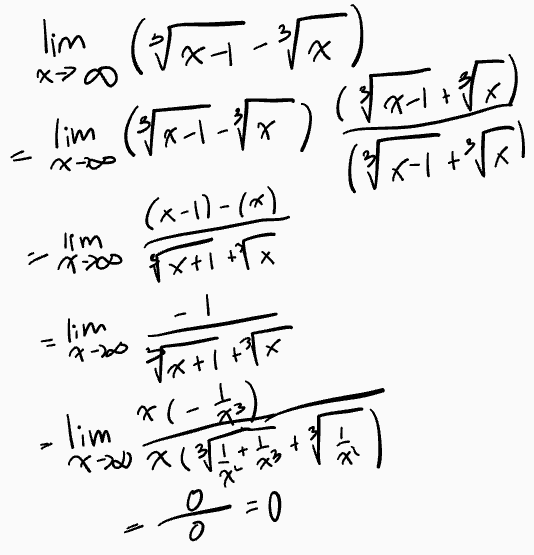 lim x→∞ (∛(x-1) - ∛x)
= lim x→∞ (∛(x-1) - ∛x) (∛(x-1) + ∛x)/(∛(x-1) + ∛x)
= lim x→∞ ((x-1) - (x))/(∛(x+1) + ∛x)
= lim x→∞ -1/(∛(x+1) + ∛x)
= lim x→∞ x(-1/x³)/x(∛(1/x² + 1/x³) + ∛(1/x²))
= 0/0 = 0